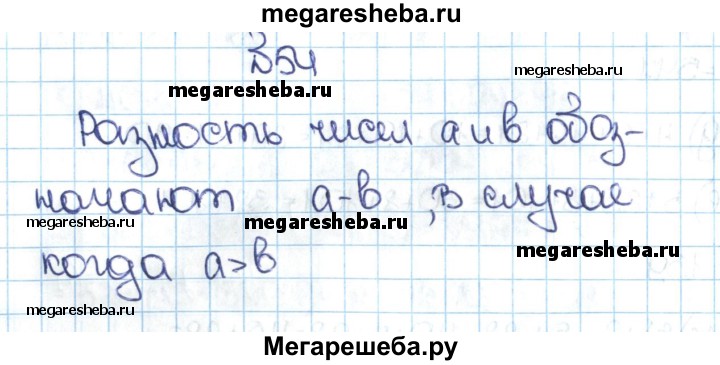 megaresheba.ru
В54
megaresheba.ru
megaresheba.ru
Разность чисел а и в обоз-
начают а-в, в случае
megaresheba.ru
megaresheba.ru
megaresheba.ru
когда а>в
megaresheba.ru
Мегарешеба.ру